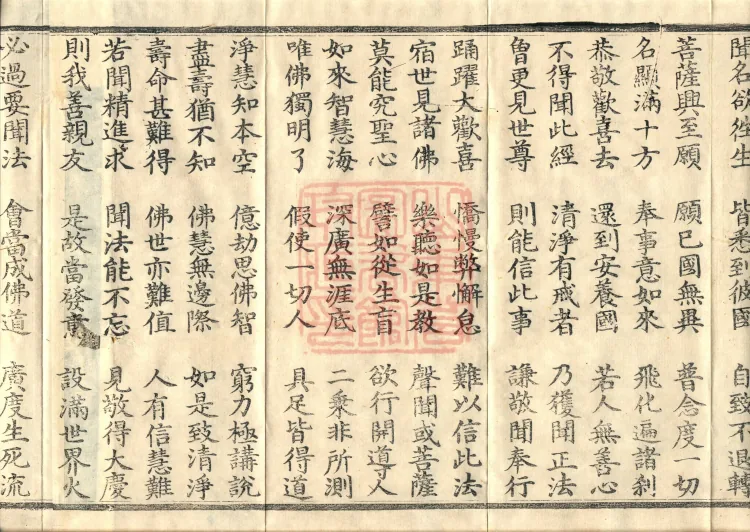 聞名欲往生 皆悉到彼國 自致不退轉
菩薩興至願 願已國無異 普念度一切
名顯滿十方 奉事意如來 飛化遍諸刹
恭敬歡喜去 還到安養國 若人無善心
不得聞此經 清淨有戒者 乃獲聞正法
曾更見世尊 則能信此事 謙敬聞奉行
踊躍大歡喜 憍慢弊懈怠 難以信此法
宿世見諸佛 樂聽如是教 聲聞或菩薩
莫能究聖心 譬如從生盲 欲行開導人
如來智慧海 深廣無涯底 二乘非所測
唯佛獨明了 假使一切人 具足皆得道
淨慧知本空 億劫思佛智 窮力極講說
盡壽猶不知 佛慧無邊際 如是致清淨
壽命甚難得 佛世亦難值 人有信慧難
若聞精進求 聞法能不忘 見敬得大慶
則我善親友 是故當發意 設滿世界火
必過要聞法 會當成佛道 廣度生死流